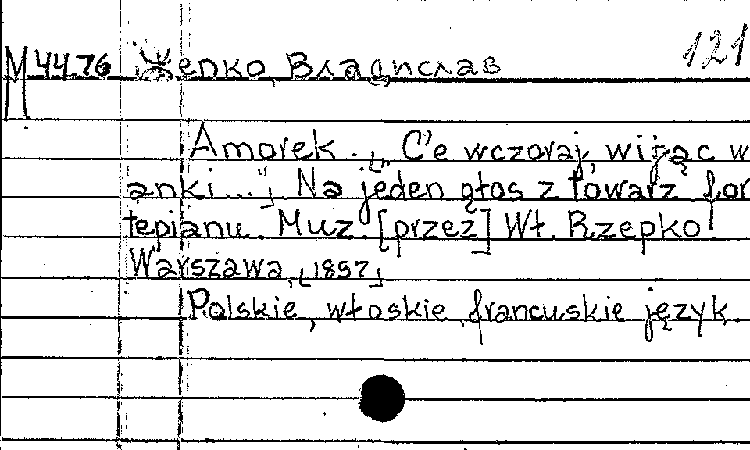 M 44.76 Жепко, Владислав 121
Amorek. „C'e wczoraj, wijąc w
anki..." Na jeden głos z towarz for
tepianu. Muz. [przez] Wł. Rzepko
Warszawa, [1897]
Polskie, włoskie, francuskie język.